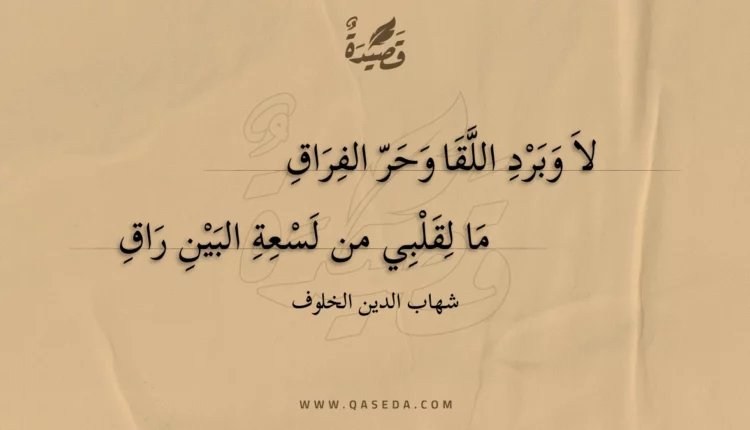 قَصِيدَةٌ
لاَ وَبَرْدِ اللَّقَا وَحَرّ الفِرَاقِ
مَا لِقَلْبِي من لَسْعِةِ البَيْنِ رَاقِ
شهاب الدين الخلوف
WWW.QASEDA.COM